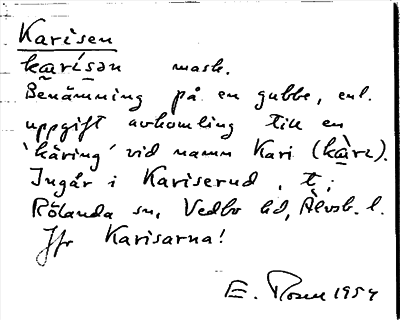 Karisen
karisən mask.
Benämning på en gubbe, enl.
uppgift avkomling till en
'käring' vid namn Kari (kàri).
Ingår i Kariserud, t;
Rölanda sn, Vedbo hd, Älvsb. l.
Jfr Karisarna!
E. Rosen 1954